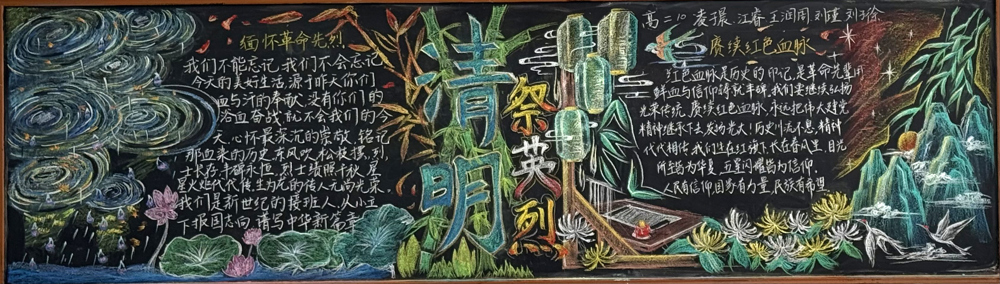 缅怀革命先烈
我们不能忘记,我们不会忘记
今天的美好生活,源于昨天你们
血与汗的奉献,没有你们的
浴血奋战,就不会我们的今
天,心怀最深沉的崇敬,铭记
那血染的历史,东风吹,松枝摆,烈
士长存,丰碑永恒,烈士绩照千秋,星
星火炬代代传,生为龙的传人无尚光荣
我们是新世纪的接班人,从小立
下报国志向,谱写中华新篇章
清明
祭英烈
高二10 江睿 王润周
赓续红色血脉
红色血脉是历史的印记,是革命先辈用
鲜血与信仰铸就丰碑,我们要继续弘扬
光荣传统,赓续红色血脉,永远把伟大建党
精神继承下去,发扬光大!历史川流不息,精神
代代相传,我们生在红旗下,长在春风里,目光
所至皆为华夏,五星闪耀皆为信仰
人民有信仰,国家有力量,民族有希望